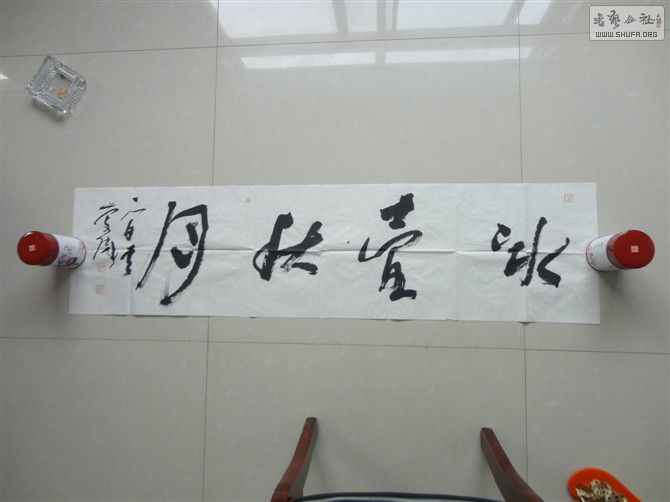 冰壺秋月
书艺公社
WWW.SHUFA.ORG